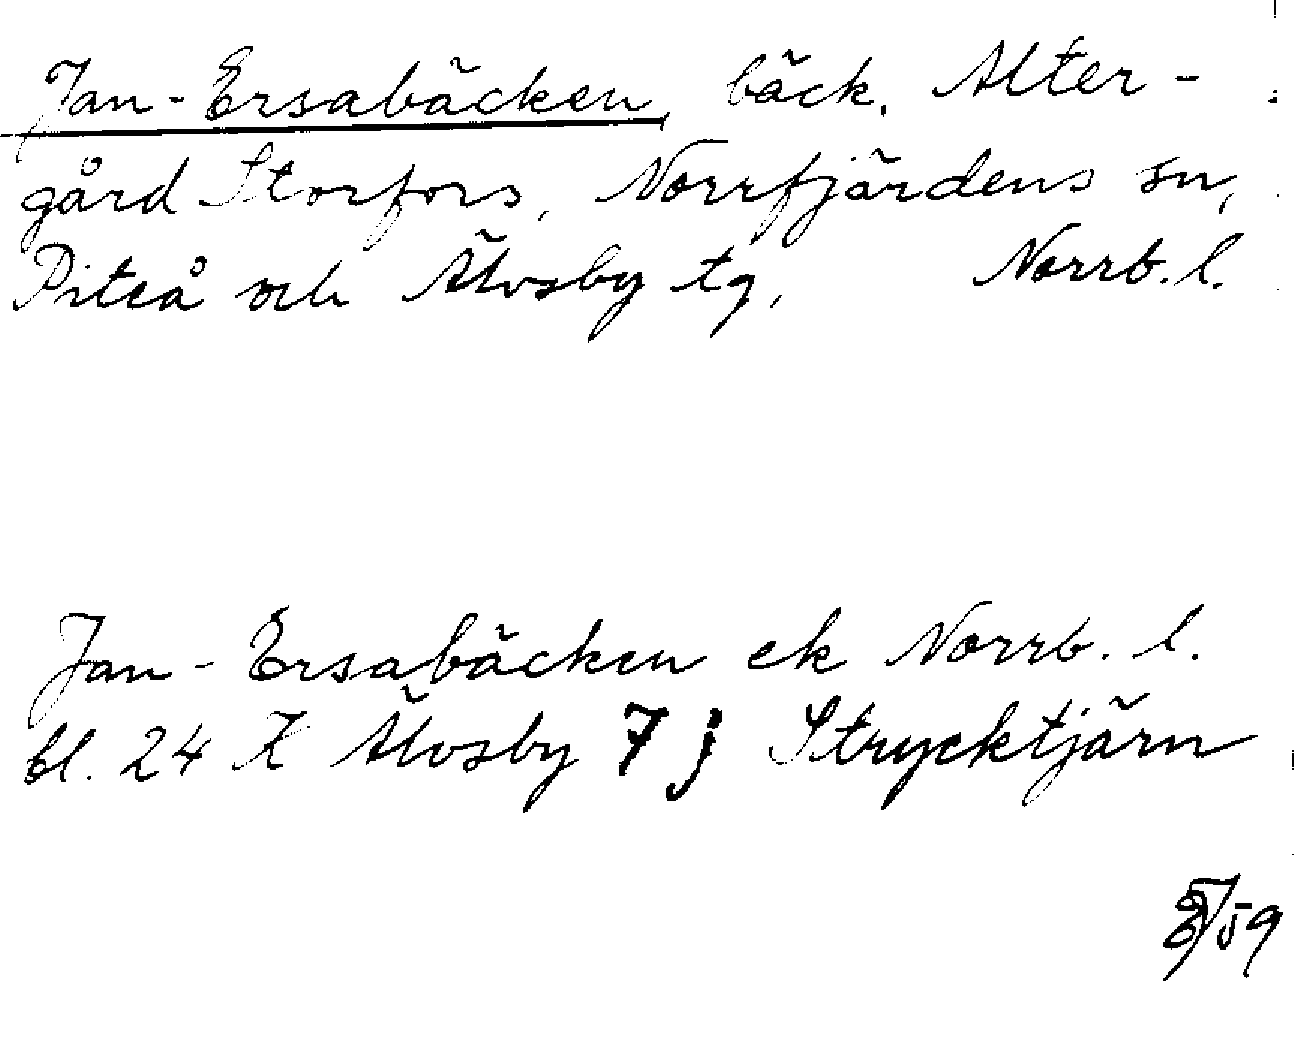 Jan-Ersabäcken, bäck, Alter-
gård Storfors, Norrfjärdens sn,
Piteå och Älvsby tg, Norrb. l.
Jan-Ersabäcken ek Norrb. l.
bl. 24 K Älvsby 7 j Strycktjärn